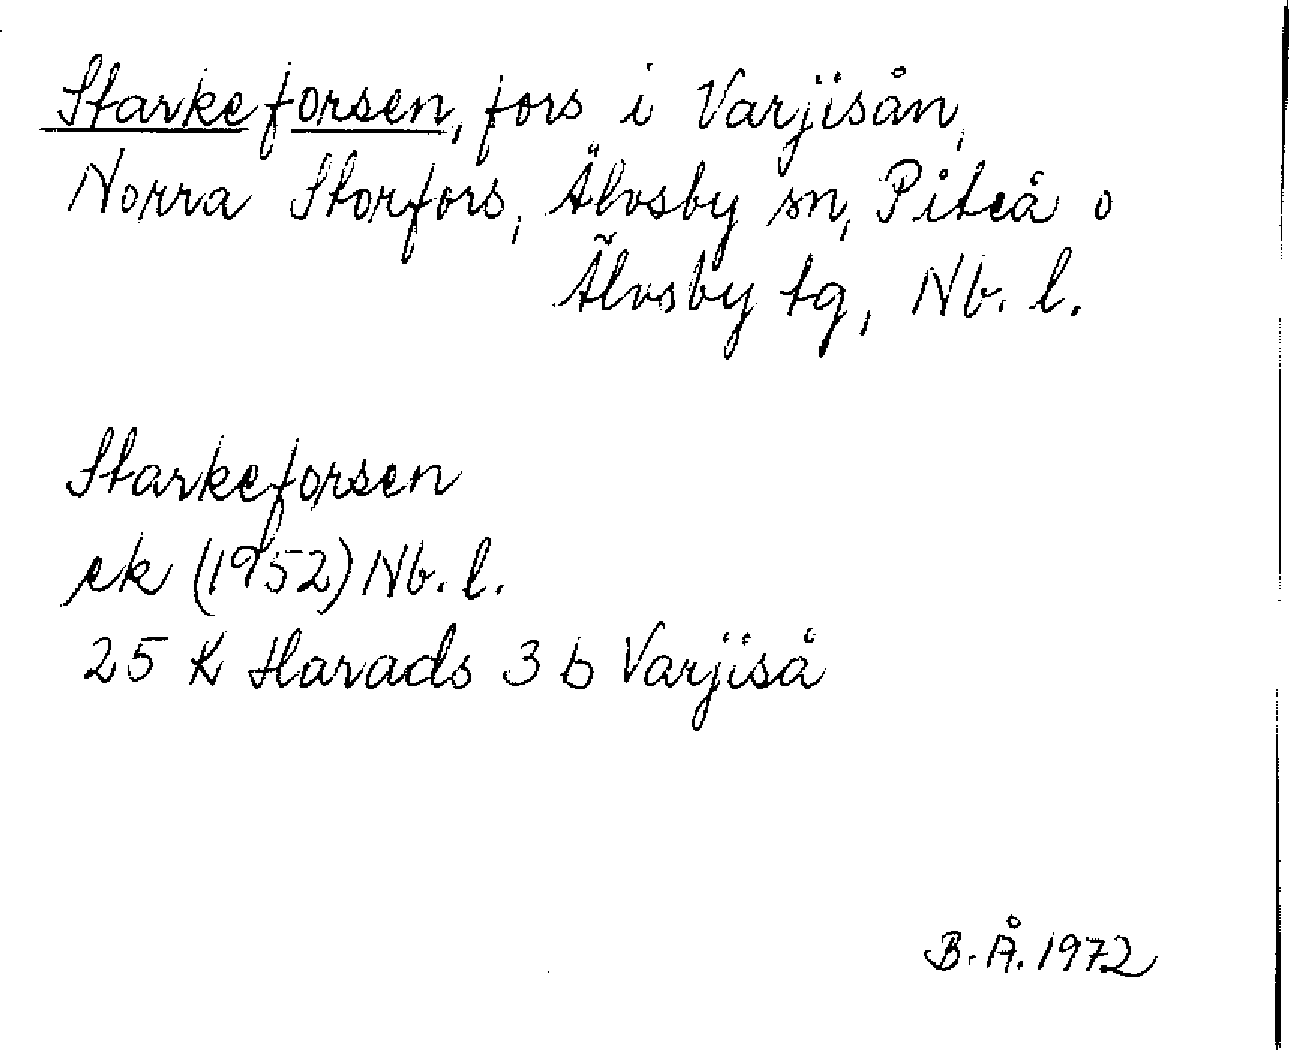 Starkeforsen, fors i Varjisån,
Norra Storfors, Älvsby sn, Piteå o
Älvsby tg, Nb. l.
Starkeforsen
ek (1952) Nb. l.
25 K Harads 3 b Varjiså
B. Å. 1972